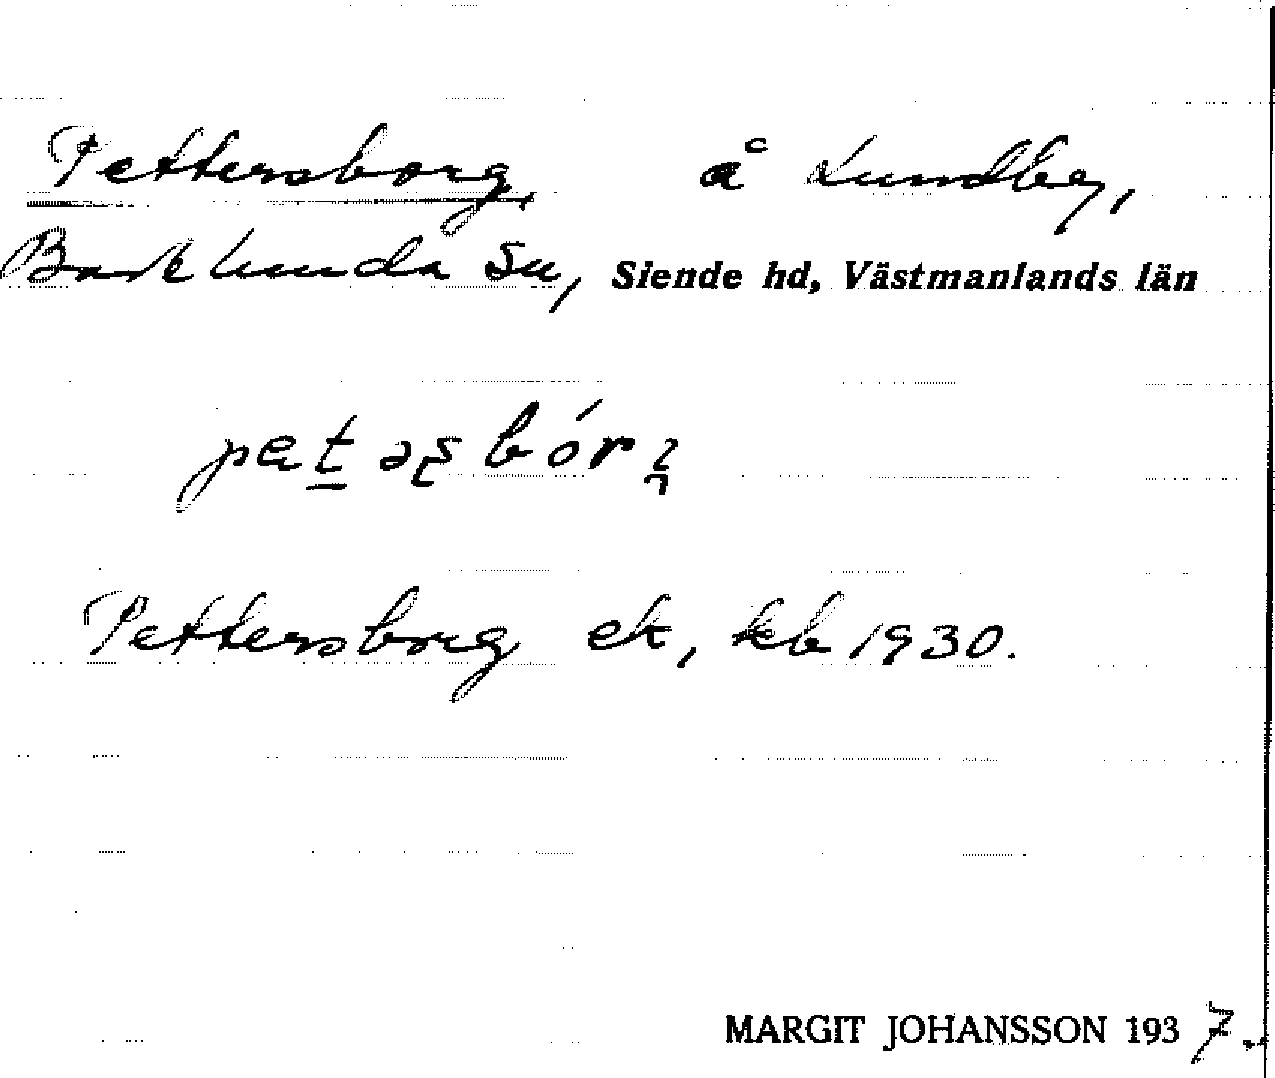 Pettersborg, å Lundby,
Barkhunda sn, Siende hd, Västmanlands län
Pettersborg ek, kb 1930.
MARGIT JOHANSSON 1937.